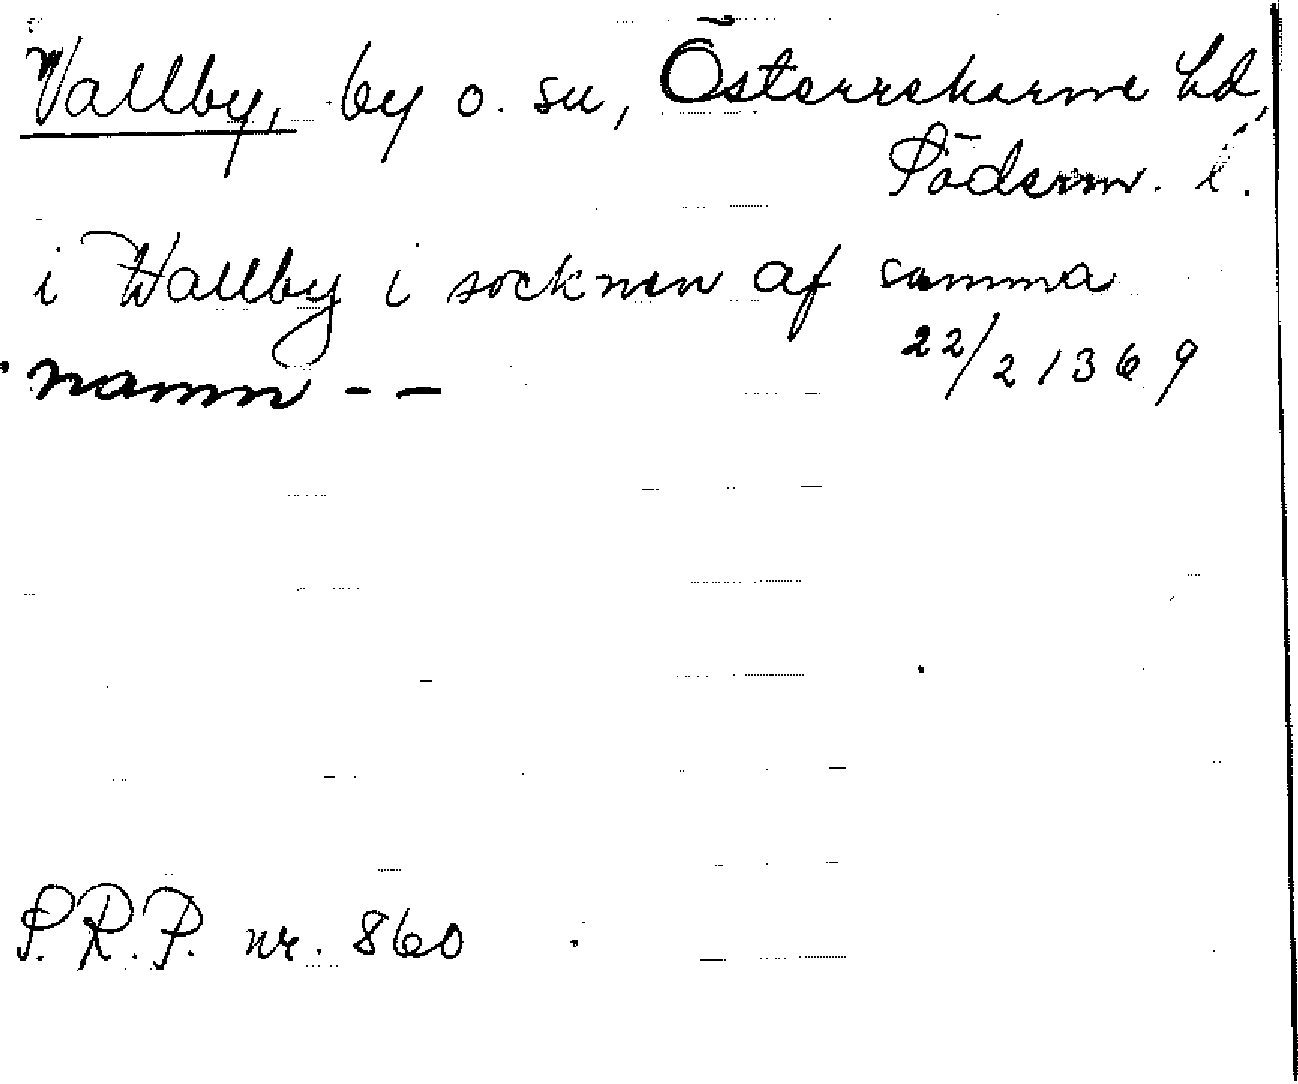 Vallby, by o. sn, Österrekarne hd,
Söderm. l.
i Wallby i socknen af samma
namn - - 22/2 1369
S.R.P. nr. 860